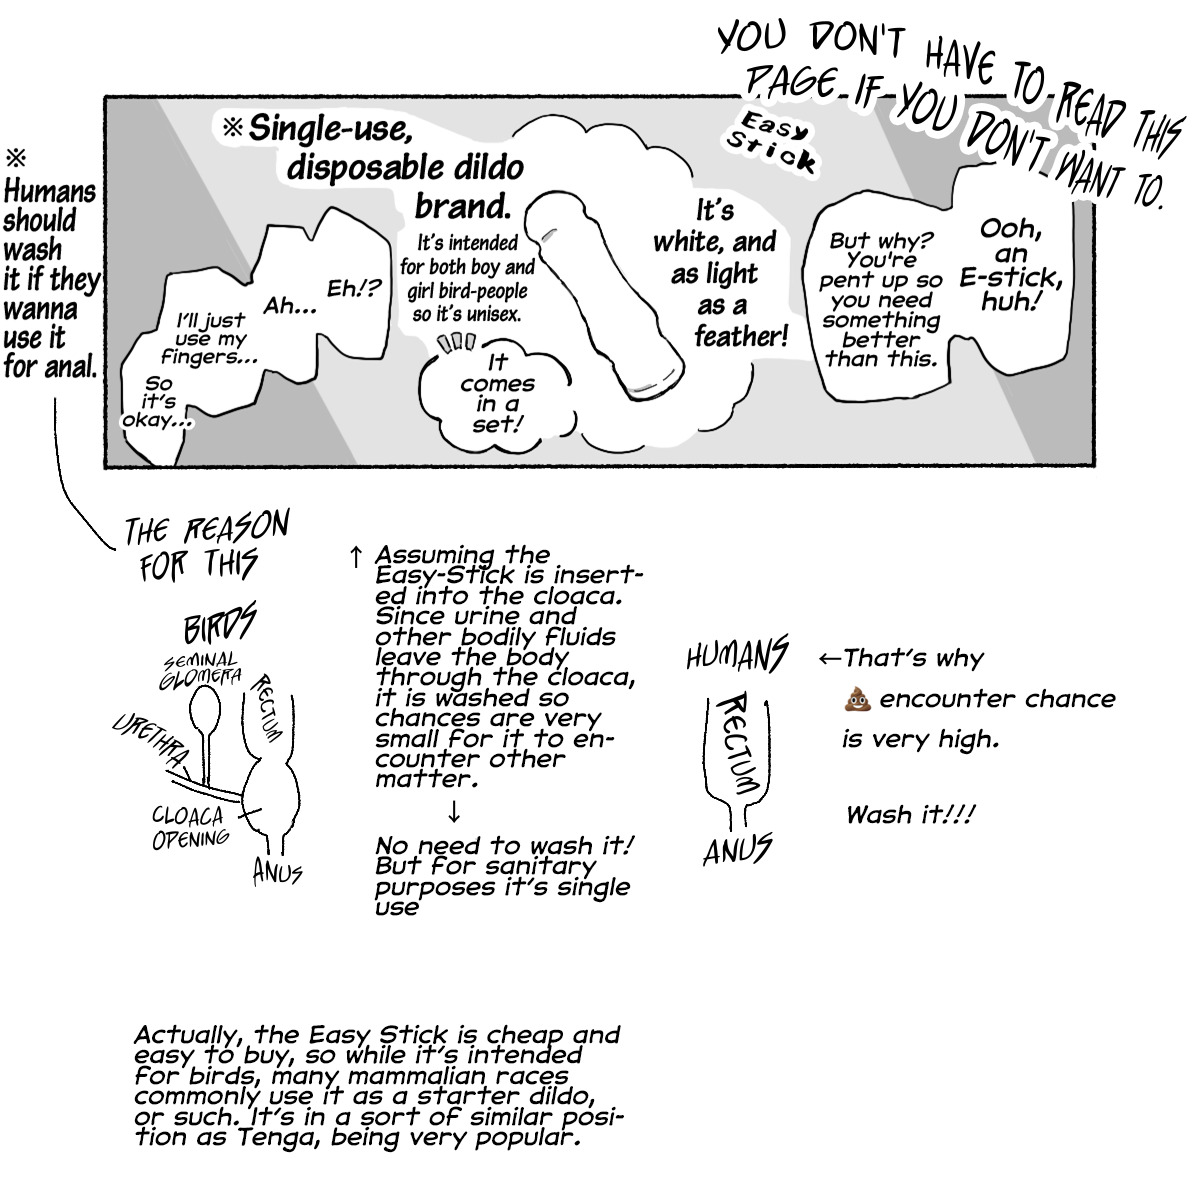 YOU DON'T HAVE TO READ THIS
PAGE IF YOU DON'T WANT TO.
※
Humans
should
wash
it if they
wanna
use it
for anal.
※Single-use,
disposable dildo
brand.
It's intended
for both boy and
girl bird-people
so it's unisex.
Easy
Stick
It's
white, and
as light
as a
feather!
Ooh,
an
E-stick,
huh!
But why?
You're
pent up so
you need
something
better
than this.
It
comes
in a
set!
Eh!?
Ah...
I'll just
use my
fingers...
So
it's
okay...
THE REASON
FOR THIS
BIRDS
SEMINAL
GLOMERA
RECTUM
URETHRA
CLOACA
OPENING
ANUS
↑ Assuming the
Easy-Stick is insert-
ed into the cloaca.
Since urine and
other bodily fluids
leave the body
through the cloaca,
it is washed so
chances are very
small for it to en-
counter other
matter.
↓
No need to wash it!
But for sanitary
purposes it's single
use
HUMANS
RECTUM
ANUS
←That's why
💩 encounter chance
is very high.
Wash it!!!
Actually, the Easy Stick is cheap and
easy to buy, so while it's intended
for birds, many mammalian races
commonly use it as a starter dildo,
or such. It's in a sort of similar posi-
tion as Tenga, being very popular.